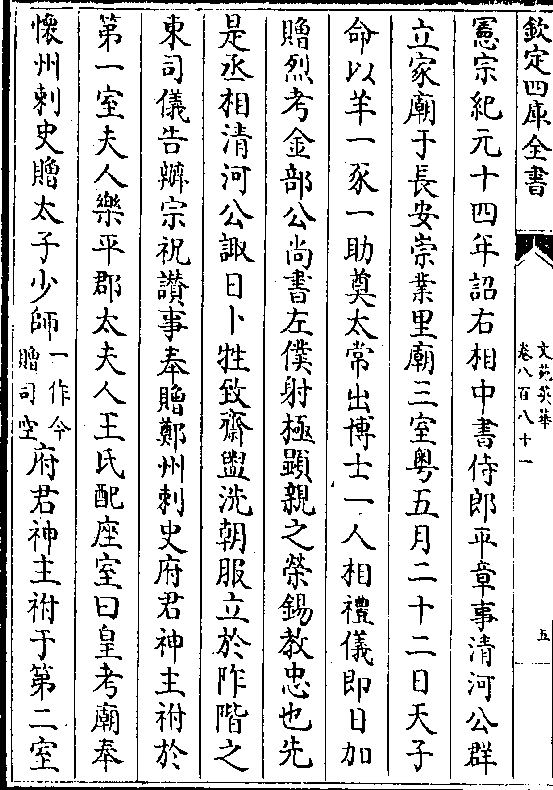 欽定四庫全書
文苑英華
卷八百八十一
五
憲宗紀元十四年詔右相中書侍郎平章事清河公群
立家廟于長安崇業里廟三室粤五月二十二日天子
命以羊一豕一助奠太常出博士一人相禮儀即日加
贈烈考金部公尚書左僕射極顯親之榮錫教忠也先
是丞相清河公諏日卜牲致齋盥洗朝服立於阼階之
東司儀告辦宗祝讚事奉贈鄭州刺史府君神主祔於
第一室夫人樂平郡太夫人王氏配座室曰皇考廟奉
懷州刺史贈太子少師一作今贈司空府君神主祔于第二室